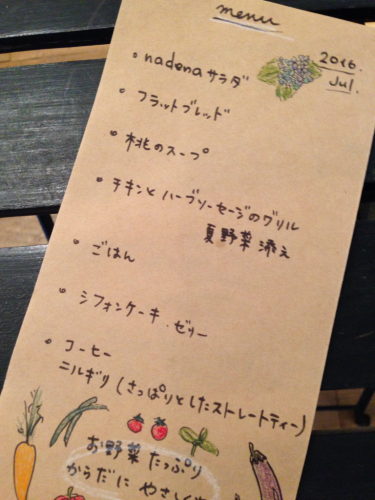 menu
2016.
Jul.
• nadenaサラダ
• フラットブレッド
• 桃のスープ
• チキンとハーブソーセージのグリル
夏野菜添え
• ごはん
• シフォンケーキ・ゼリー
• コーヒー
ニルギリ(さっぱりとしたストレートティー)
お野菜たっぷり
からだにやさしい